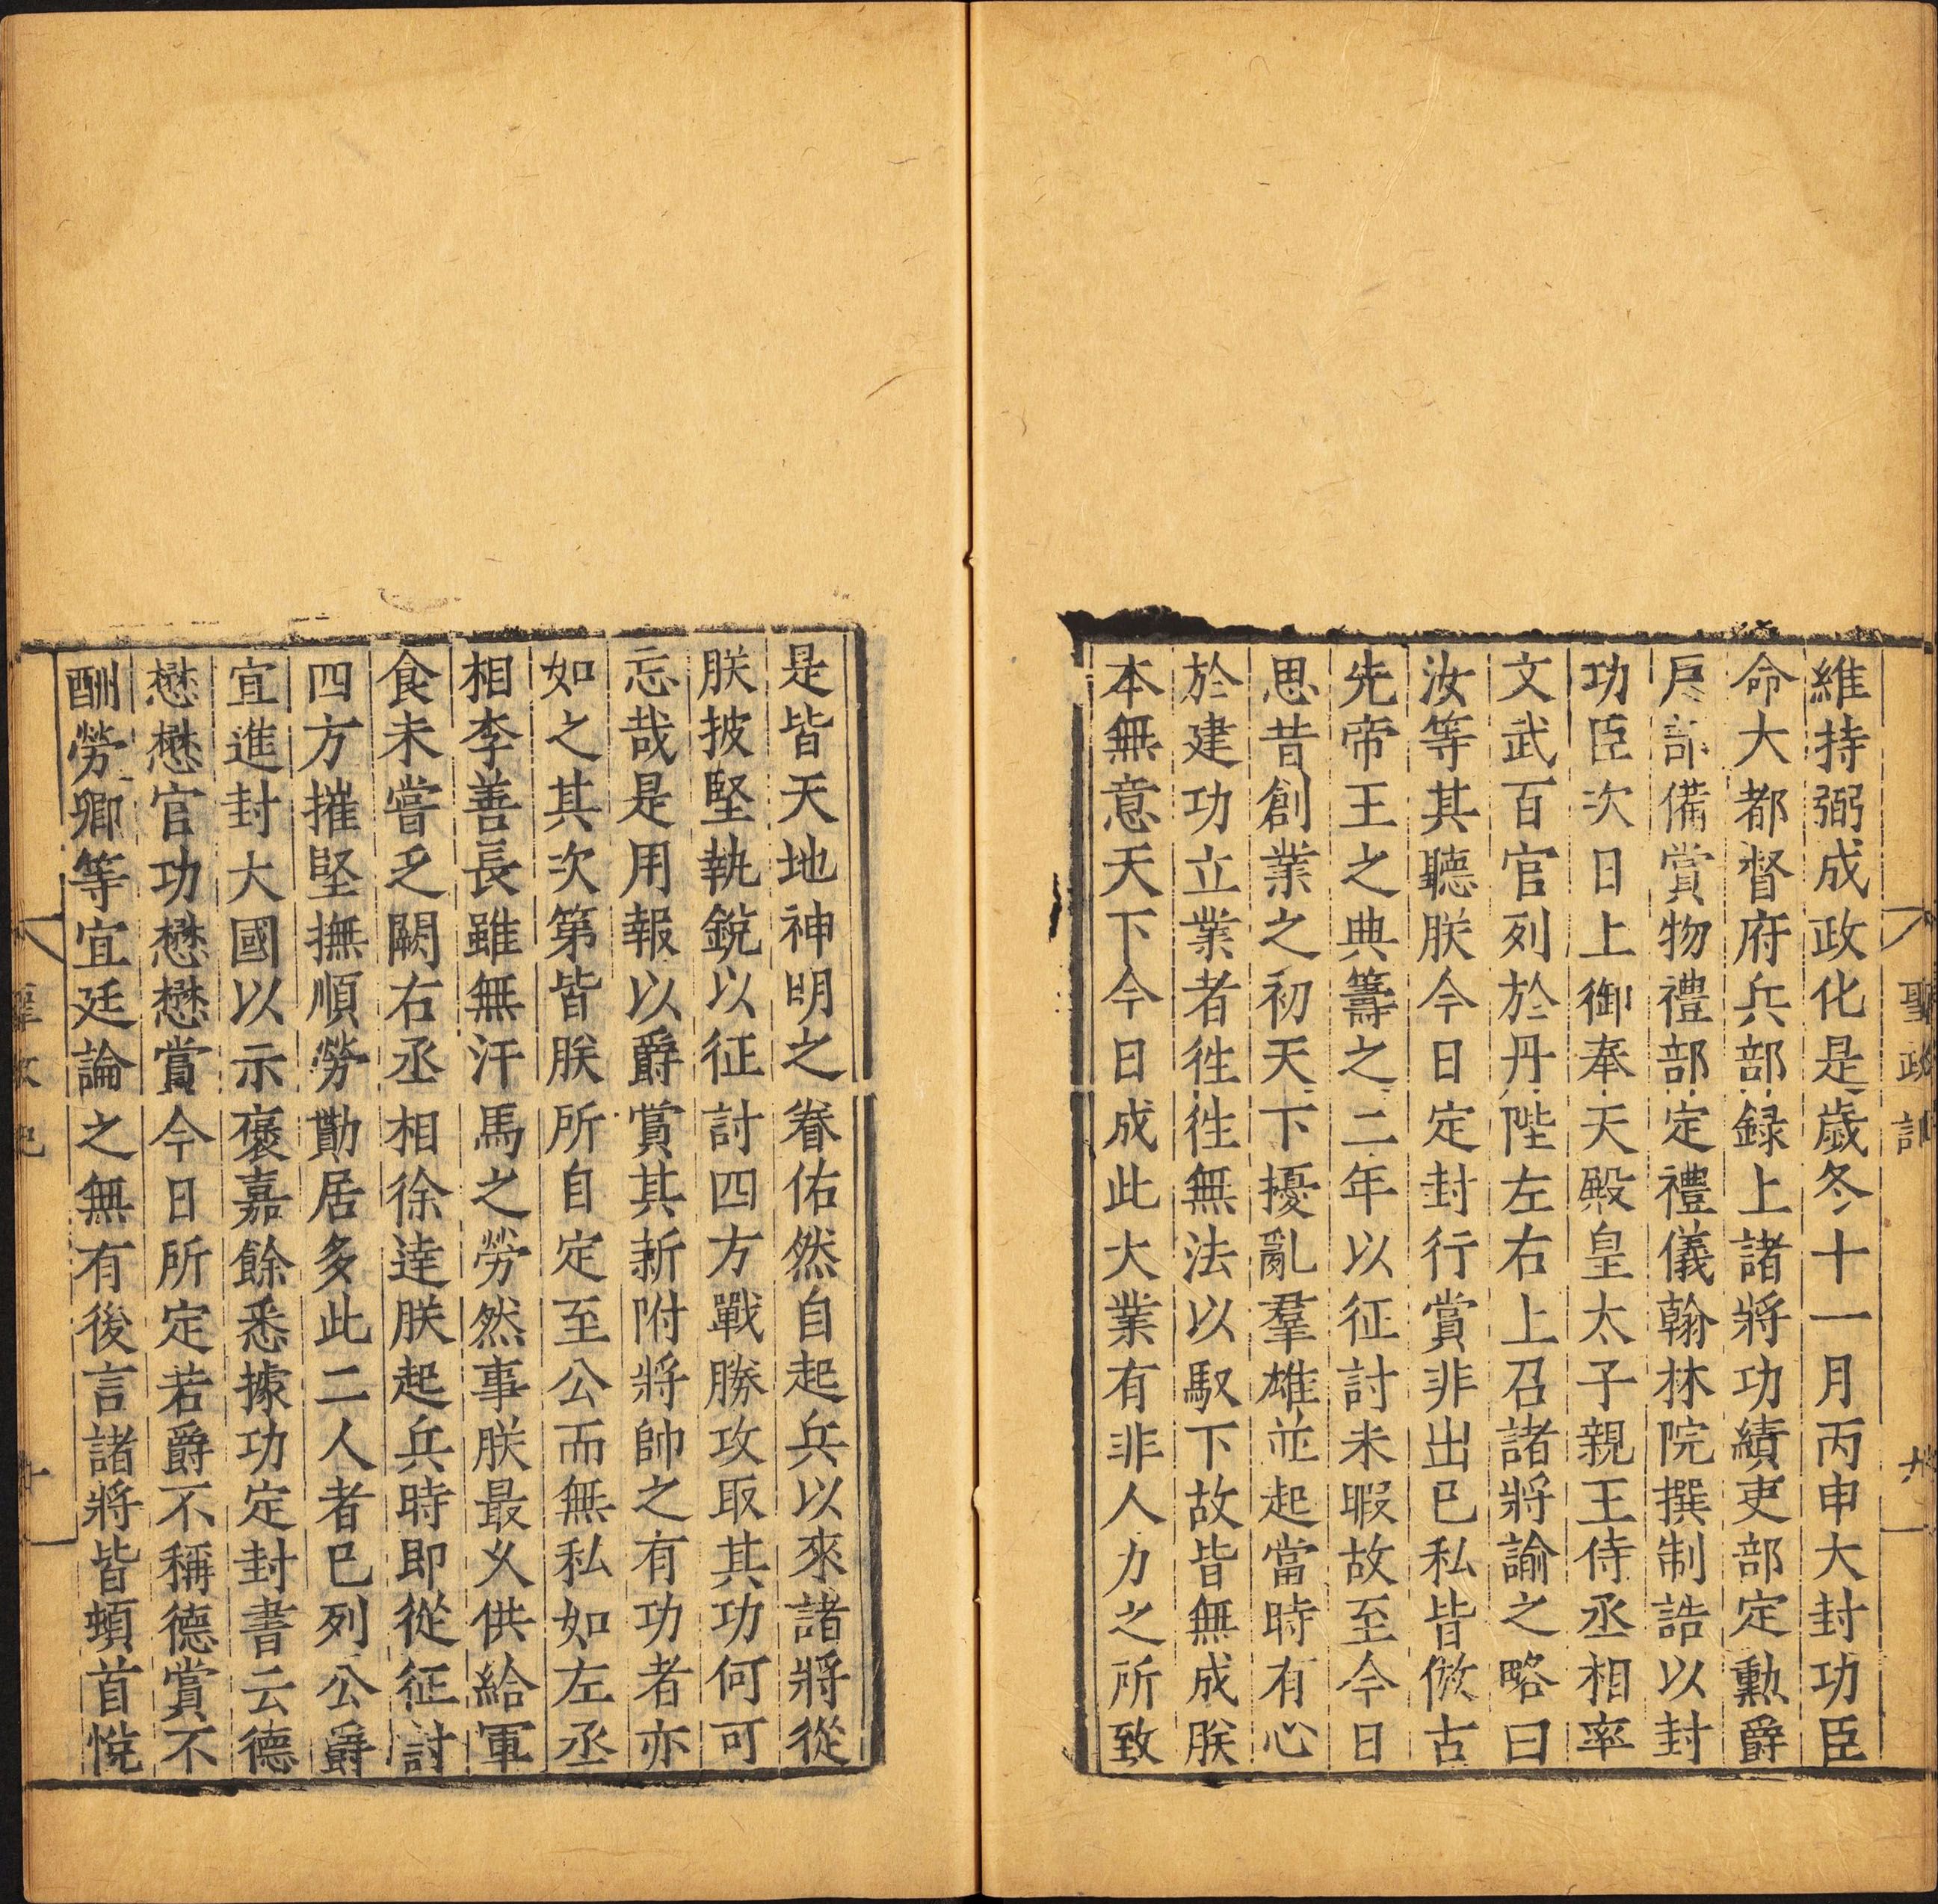 維持弼成政化是歲冬十一月丙申大封功臣
命大都督府兵部録上諸將功績吏部定勳爵
戶部備賞物禮部定禮儀翰林院撰制誥以封
功臣次日上御奉天殿皇太子親王侍丞相率
文武百官列於丹陛左右上召諸將諭之略曰
汝等其聽朕今日定封行賞非出已私皆倣古
先帝王之典籌之二年以征討未暇故至今日
思昔創業之初天下擾亂羣雄並起當時有心
於建功立業者徃徃無法以馭下故皆無成朕
本無意天下今日成此大業有非人力之所致
是皆天地神明之眷佑然自起兵以來諸將從
朕披堅執銳以征討四方戰勝攻取其功何可
忘哉是用報以爵賞其新附將帥之有功者亦
如之其次第皆朕所自定至公而無私如左丞
相李善長雖無汗馬之勞然事朕最乆供給軍
食未嘗乏闕右丞相徐逹朕起兵時即從征討
四方摧堅撫順勞勩居多此二人者已列公爵
宜進封大國以示褒嘉餘悉據功定封書云德
懋懋官功懋懋賞今日所定若爵不稱德賞不
酬勞卿等宜廷論之無有後言諸將皆頓首悅